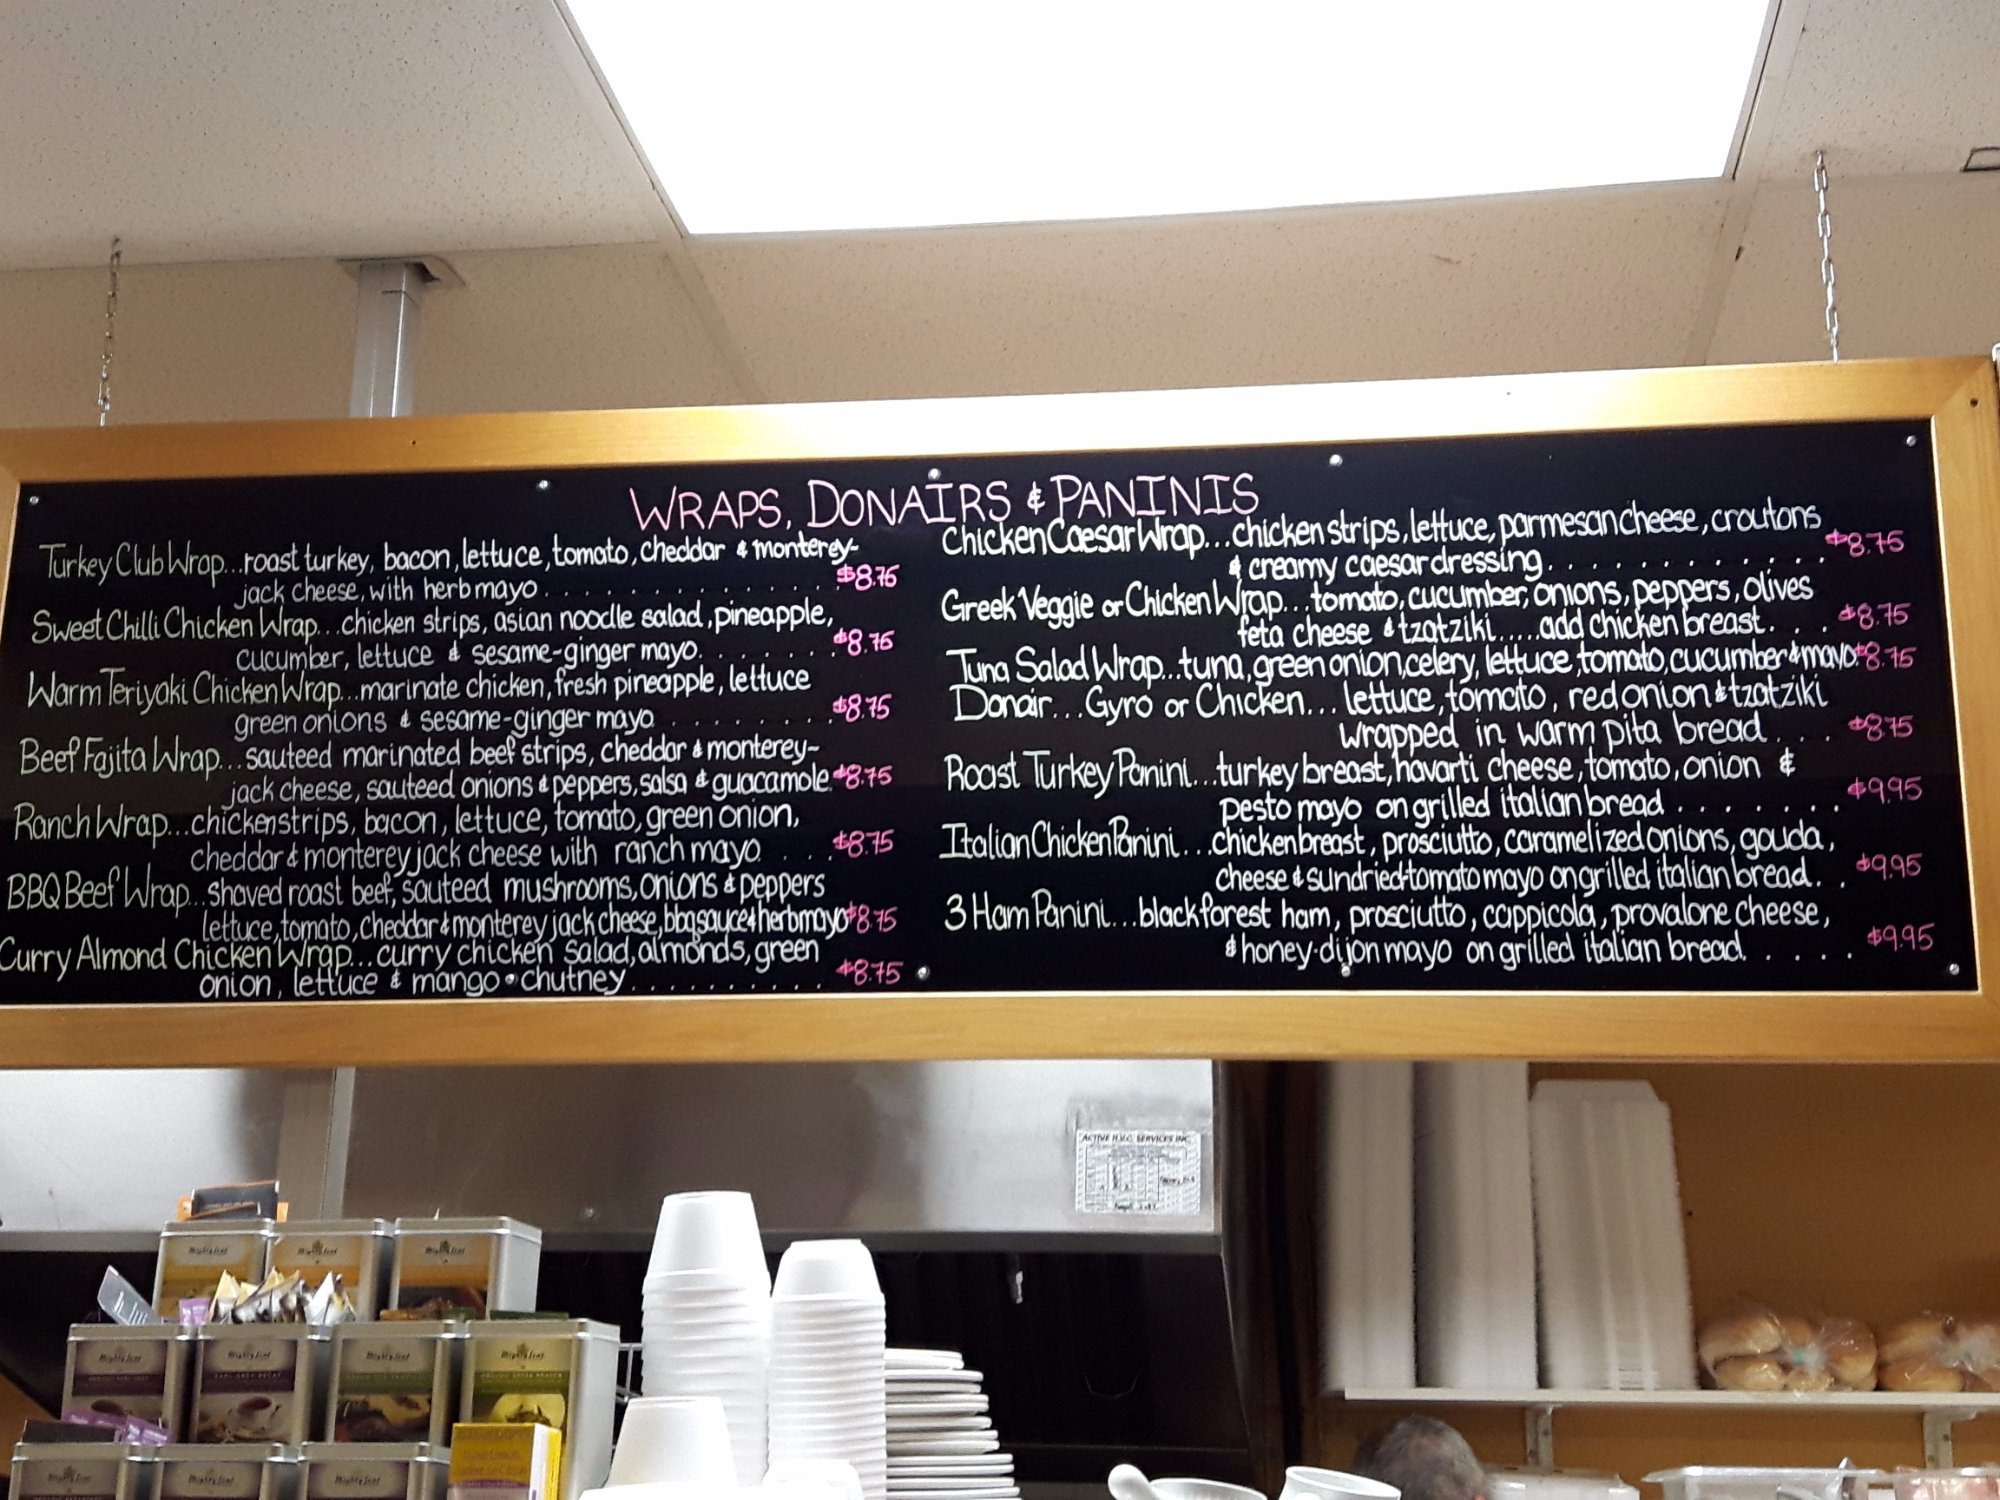 WRAPS, DONAIRS & PANINIS
Turkey Club Wrap...roast turkey, bacon, lettuce, tomato, cheddar & monterey-
jack cheese, with herb mayo . . . . . . . . . . . . . . . $8.75
Sweet Chilli Chicken Wrap...chicken strips, asian noodle salad, pineapple,
cucumber, lettuce & sesame-ginger mayo. . . . . . . $8.75
Warm Teriyaki Chicken Wrap...marinate chicken, fresh pineapple, lettuce
green onions & sesame-ginger mayo . . . . . . . . . $8.75
Beef Fajita Wrap...sauteed marinated beef strips, cheddar & monterey-
jack cheese, sauteed onions & peppers, salsa & guacamole. $8.75
Ranch Wrap...chicken strips, bacon, lettuce, tomato, green onion,
cheddar & monterey jack cheese with ranch mayo . . . . $8.75
BBQ Beef Wrap...shaved roast beef, sauteed mushrooms, onions & peppers
lettuce, tomato, cheddar & monterey jack cheese, bbq sauce & herb mayo $8.75
Curry Almond Chicken Wrap...curry chicken salad, almonds, green
onion, lettuce & mango chutney . . . . . . . . . . $8.75
Chicken Caesar Wrap...chicken strips, lettuce, parmesan cheese, croutons
& creamy caesar dressing . . . . . . . . . . . . . $8.75
Greek Veggie or Chicken Wrap...tomato, cucumber, onions, peppers, olives
feta cheese & tzatziki.....add chicken breast. . . . $8.75
Tuna Salad Wrap...tuna, green onion, celery, lettuce, tomato, cucumber & mayo. $8.75
Donair...Gyro or Chicken...lettuce, tomato, red onion & tzatziki
wrapped in warm pita bread . . . $8.75
Roast Turkey Panini...turkey breast, havarti cheese, tomato, onion &
pesto mayo on grilled italian bread . . . . . . . $9.95
Italian Chicken Panini...chicken breast, prosciutto, caramelized onions, gouda,
cheese & sundried-tomato mayo on grilled italian bread. . $9.95
3 Ham Panini...black forest ham, prosciutto, cappicola, provalone cheese,
& honey-dijon mayo on grilled italian bread. . . . . $9.95
ACTIVE H.V.C. SERVICES INC.
Mighty Leaf
Mighty Leaf
Mighty Leaf
Mighty Leaf
Mighty Leaf
EARL GREY DECAF
Mighty Leaf
Mighty Leaf
Mighty Leaf
Mighty Leaf
Mighty Leaf